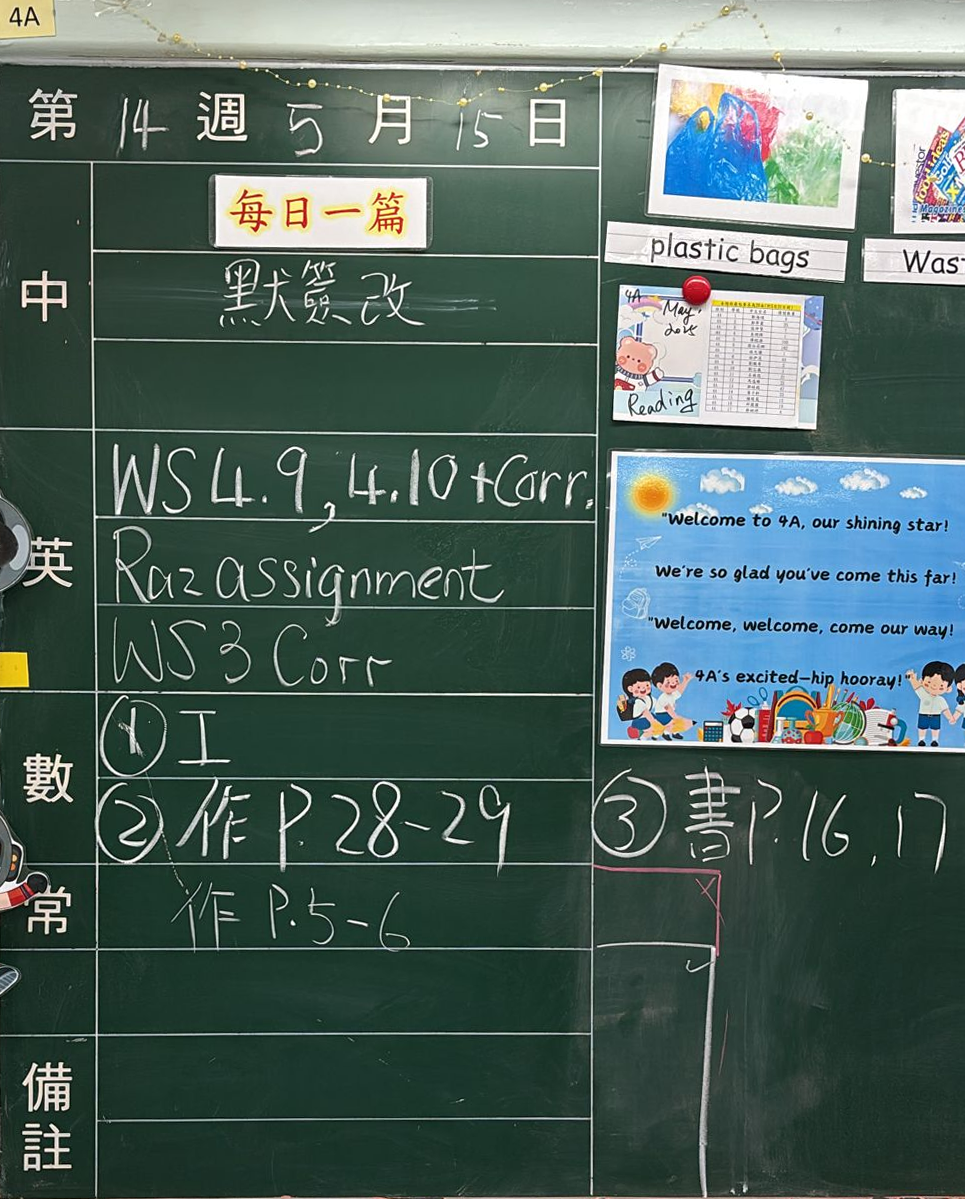 4A
第 14 週 5 月 15 日
中
每日一篇
默簽改
英
WS 4.9, 4.10 + Corr.
Raz assignment
WS3 Corr
數
① I
② 作 P. 28-29
③ 書 P. 16, 17
常
作 P. 5-6
備註
plastic bags
Was
Magazines
4A
May,
2025
Reading
"Welcome to 4A, our shining star!
We're so glad you've come this far!
"Welcome, welcome, come our way!
4A's excited—hip hooray!"